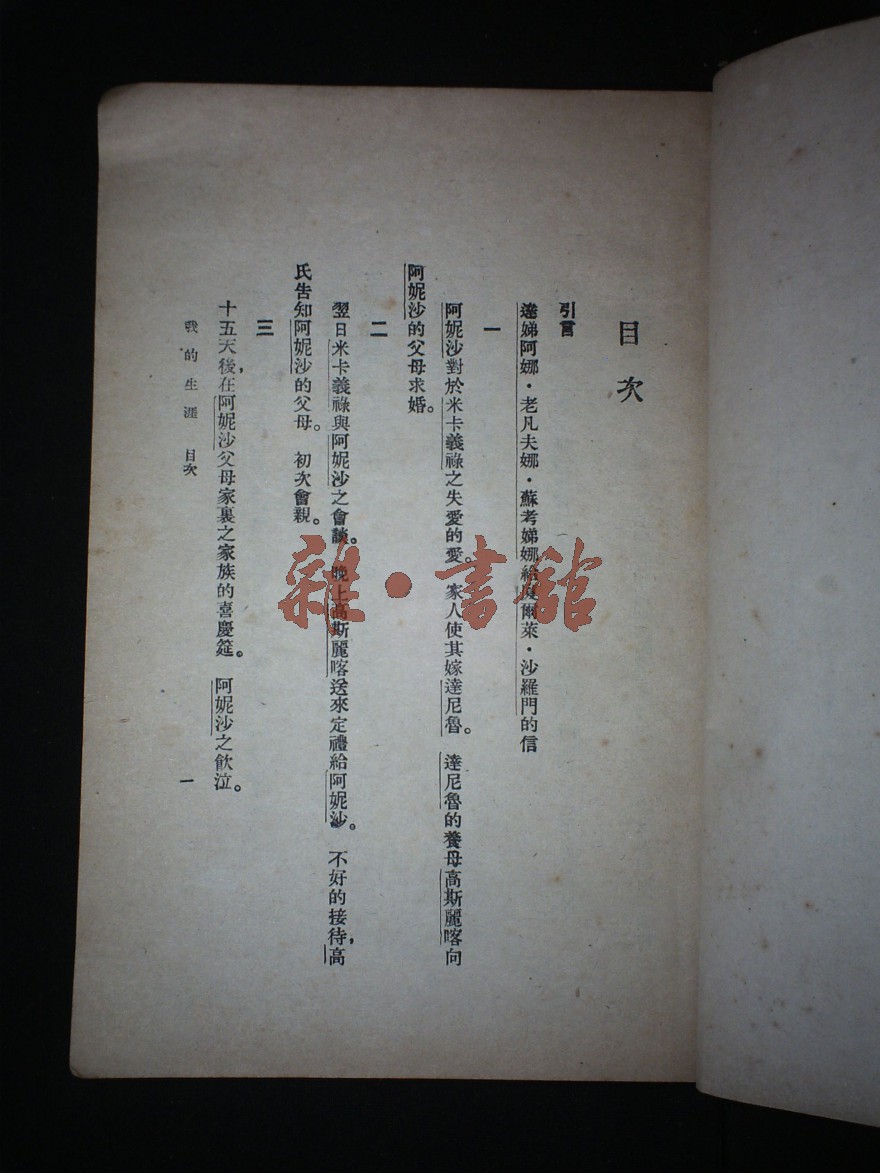 目次
引言
達娣阿娜·老凡夫娜·蘇考娣娜給夏爾萊·沙羅門的信
一
阿妮沙對於米卡義祿之失愛的愛。家人使其嫁達尼魯。達尼魯的養母高斯麗喀向
阿妮沙的父母求婚。
二
翌日米卡義祿與阿妮沙之會談。晚上高斯麗喀送來定禮給阿妮沙。不好的接待,高
氏告知阿妮沙的父母。初次會親。
三
十五天後,在阿妮沙父母家裏之家族的喜慶筵。阿妮沙之飲泣。
我的生涯 目次
一
雜·書館